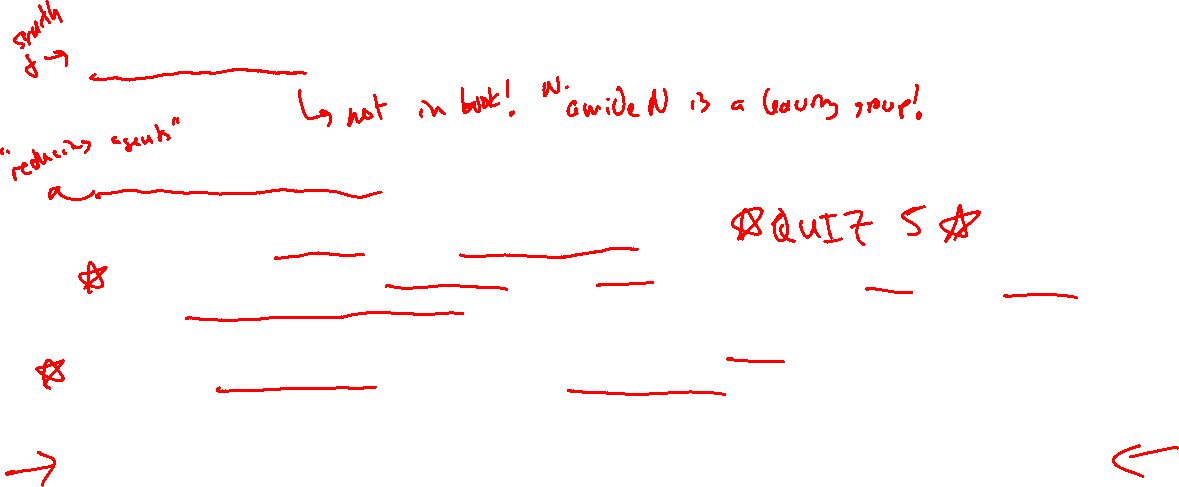 not in book! amide N is a leaving group!
"reducing agents"
QUIZ 5